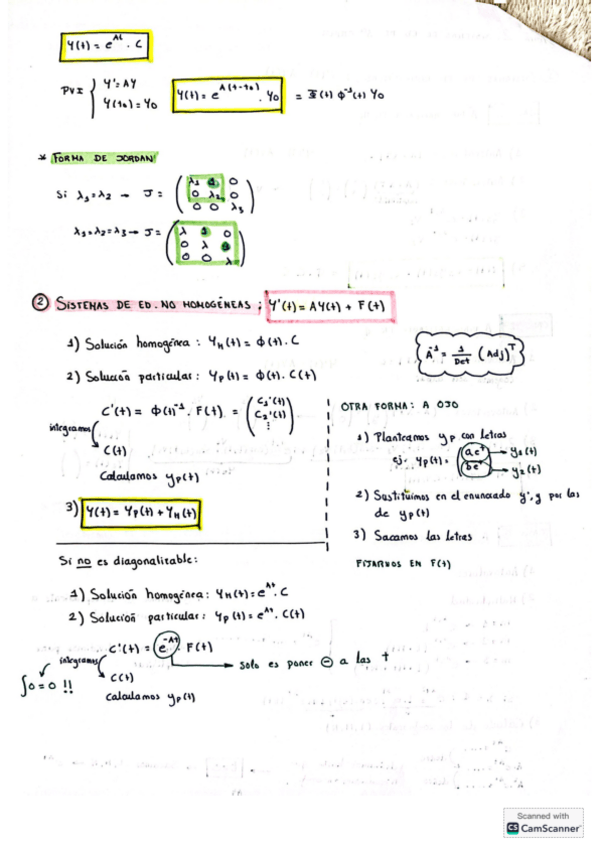 Y(t) = e^{At} · C
PVI { Y' = AY
Y(t₀) = Y₀
Y(t) = e^{A(t-t₀)} · Y₀ = Φ(t) Φ⁻¹(t) Y₀
* FORMA DE JORDAN
Si λ₁=λ₂ → J = ( λ₁ 1 0
0 λ₂ 0
0 0 λ₃ )
λ₁=λ₂=λ₃ → J = ( λ 1 0
0 λ 1
0 0 λ )
② SISTEMAS DE ED. NO HOMOGÉNEAS ; Y'(t) = AY(t) + F(t)
1) Solución homogénea : Y_H(t) = Φ(t) · C
2) Solución particular : Y_P(t) = Φ(t) · C(t)
A⁻¹ = 1/Det (Adj)^T
C'(t) = Φ(t)⁻¹ · F(t) = ( C₁'(t)
C₂'(t)
⋮ )
integramos
C(t)
Calculamos y_P(t)
3) Y(t) = Y_P(t) + Y_H(t)
OTRA FORMA : A OJO
1) Planteamos y_P con letras
ej. y_P(t) = ( ae^t → y₁(t)
be^t → y₂(t) )
2) Sustituimos en el enunciado y', y por las
de y_P(t)
3) Sacamos las letras
FIJARNOS EN F(t)
Si no es diagonalizable :
1) Solución homogénea : Y_H(t) = e^{At} · C
2) Solución particular : Y_P(t) = e^{At} · C(t)
C'(t) = e^{-At} · F(t)
→ solo es poner ⊖ a las t
integramos
C(t)
∫0 = 0 !!
Calculamos y_P(t)
Scanned with
CS CamScanner